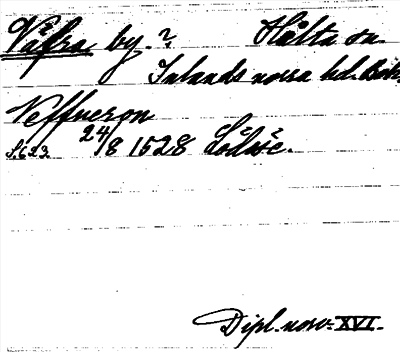 Våfra by.? Hålta sn.
Inlands norra hd. Boh.
Neffueron
S. 623 24/8 1528 Lödöse.
Dipl. norv. XVI.